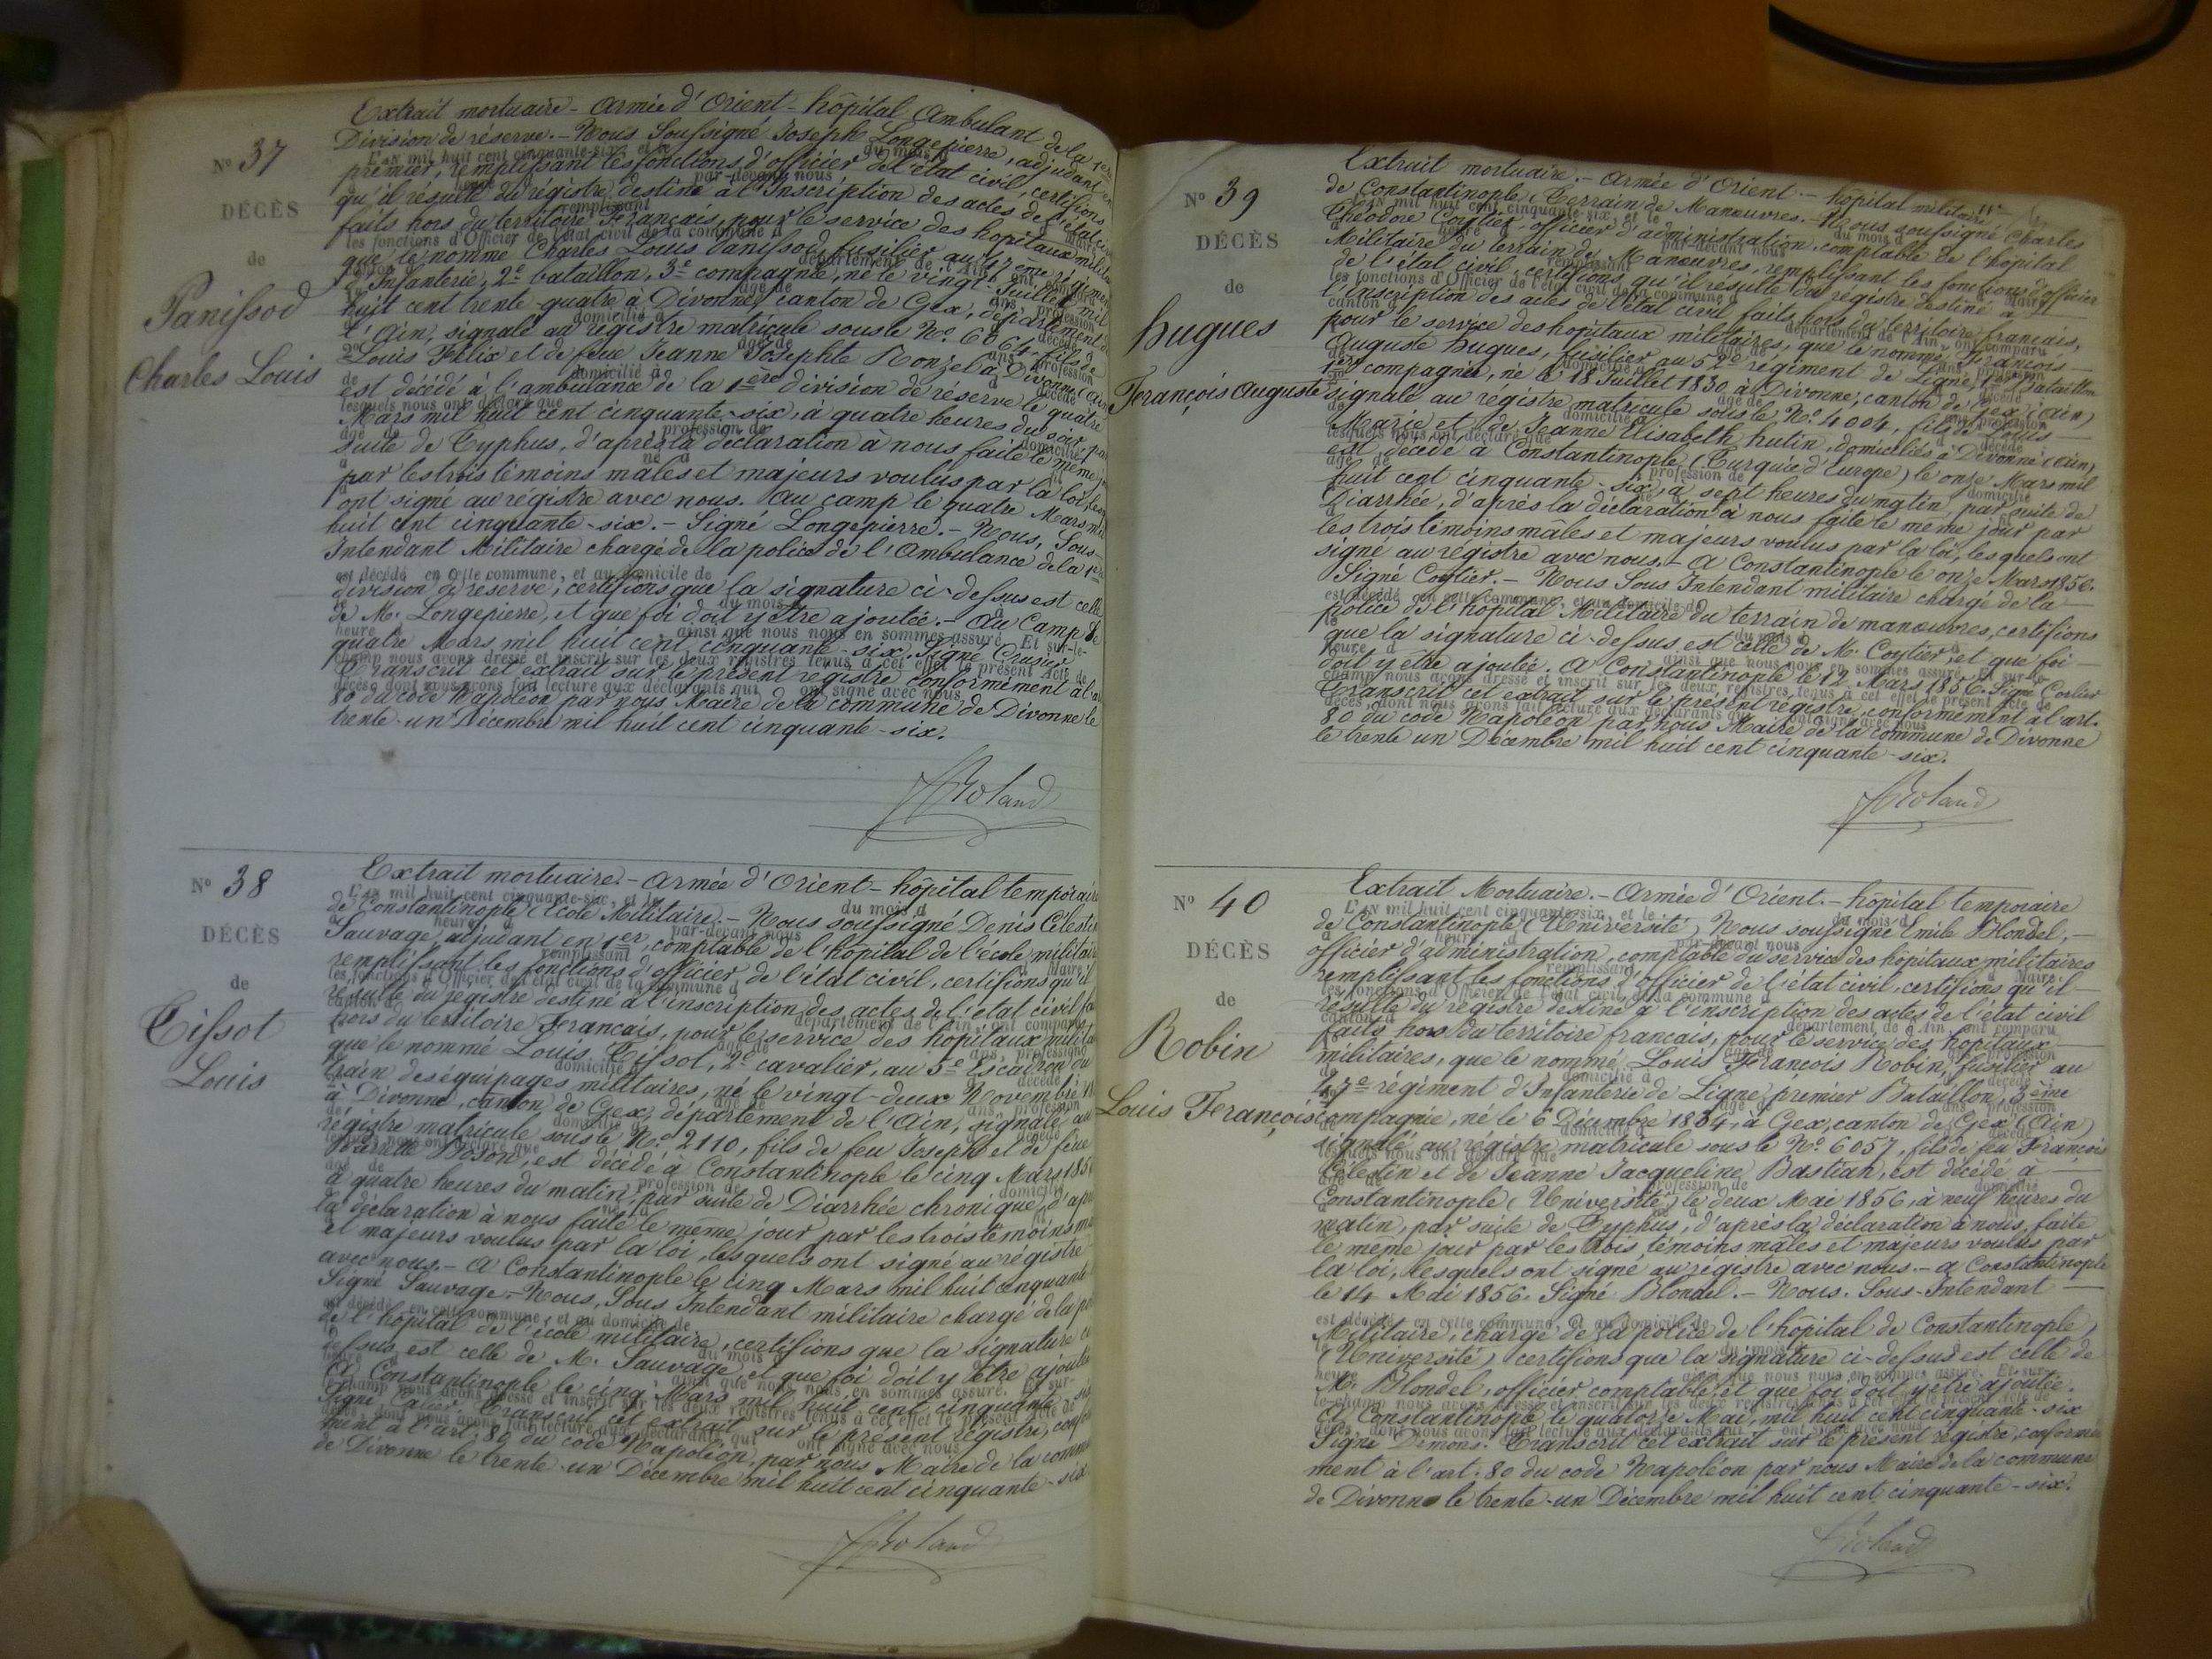 Nº 37
DÉCÈS
de
Panissod
Charles Louis
Extrait mortuaire - Armée d'Orient - hôpital Ambulant de la 1ere
Division de réserve. - Nous Soussigné Joseph Longepierre, adjudant en
premier, remplissant les fonctions d'officier de l'état civil, certifions
qu'il résulte du régistre destiné à l'Inscription des actes de l'état civil
faits hors du territoire Français, pour le service des hopitaux milit
que le nommé Charles Louis Panissod, fusilier au 47ème régiment
d'Infanterie, 2e bataillon, 3e compagnie, né le vingt Juillet mil
huit cent trente-quatre à Divonne, canton de Gex, département de
l'Ain, signalé au régistre matricule sous le Nº 6064, fils de
Louis Félix et de feue Jeanne Josephte Ronzel à Divonne (Ain
est décédé à l'ambulance de la 1ère division de réserve le quatre
Mars mil huit cent cinquante-six, à quatre heures du soir, par
suite de Typhus, d'après la déclaration à nous faite le même j
par les trois témoins mâles et majeurs voulus par la loi, lesq
ont signé au régistre avec nous. Au camp le quatre Mars mil
huit cent cinquante-six. - Signé Longepierre. - Nous, Sous-
Intendant Militaire chargé de la police de l'Ambulance de la 1ere
division de réserve, certifions que la signature ci-dessus est celle
de Mr. Longepierre, et que foi doit y être ajoutée. - Au Camp le
quatre Mars mil huit cent cinquante-six. Signé
Transcrit cet extrait sur le présent registre conformément à l'art
80 du code Napoléon par nous Maire de la commune de Divonne le
trente-un Décembre mil huit cent cinquante-six.
Roland
Nº 38
DÉCÈS
de
Tissot
Louis
Extrait mortuaire. - Armée d'Orient - hôpital temporaire
de Constantinople (École Militaire. - Nous soussigné Denis Célestin
Sauvage, adjudant en 1er, comptable de l'hôpital de l'école militaire
remplissant les fonctions d'officier de l'état civil, certifions qu'il
résulte du régistre destiné à l'inscription des actes de l'état civil fa
hors du territoire Français, pour le service des hôpitaux milita
que le nommé Louis Tissot, 2e cavalier, au 5e Escadron du
train des équipages militaires, né le vingt-deux Novembre
à Divonne, canton de Gex, département de l'Ain, signalé au
régistre matricule sous le Nº 2110, fils de feu Joseph et de feue
est décédé à Constantinople le cinq Mars 1856
à quatre heures du matin, par suite de Diarrhée chronique, d'apr
la déclaration à nous faite le même jour par les trois témoins m
et majeurs voulus par la loi, lesquels ont signé au régistre
avec nous. - A Constantinople le cinq Mars mil huit cinquante
Signé Sauvage. - Nous, Sous Intendant militaire chargé de la po
de l'hôpital de l'école militaire, certifions que la signature ci
dessus est celle de M. Sauvage, et que foi doit y être ajoutée
A Constantinople le cinq Mars mil huit cent cinquante six
Signé Transcrit cet extrait sur le présent registre, conf
ment à l'art. 80 du code Napoléon, par nous Maire de la commune
de Divonne le trente-un Décembre mil huit cent cinquante-six
Roland
Nº 39
DÉCÈS
de
Hugues
François Auguste
Extrait mortuaire. - Armée d'Orient. - hôpital militaire
de Constantinople (Terrain de Manœuvres. - Nous soussigné Charles
Théodore Coytier, officier d'administration, comptable de l'hôpital
Militaire du terrain de Manœuvres, remplissant les fonctions d'officier
de l'état civil, certifions, qu'il résulte du régistre destiné à
l'inscription des actes de l'état civil faits hors du territoire français,
pour le service des hopitaux militaires, que le nommé François
Auguste Hugues, fusilier au 52e régiment de Ligne, 1er Bataillon
1ere compagnie, né le 18 Juillet 1830 à Divonne, canton de Gex (Ain)
signalé au régistre matricule sous le Nº 4004, fils de Louis
Marie et de Jeanne Elisabeth Hutin, domiciliés à Divonne (Ain)
est décédé à Constantinople (Turquie d'Europe) le onze Mars mil
huit cent cinquante-six, à sept heures du matin, par suite de
Diarrhée, d'après la déclaration à nous faite le même jour par
les trois témoins mâles et majeurs voulus par la loi, lesquels ont
signé au régistre avec nous. - A Constantinople le onze Mars 1856.
Signé Coytier. - Nous Sous Intendant militaire chargé de la
police de l'hôpital Militaire du terrain de manœuvres, certifions
que la signature ci-dessus est celle de Mr Coytier, et que foi
doit y être ajoutée. A Constantinople le 12 Mars 1856. Signé
Transcrit cet extrait sur le présent régistre, conformément à l'art.
80 du code Napoléon par nous Maire de la commune de Divonne
le trente un Décembre mil huit cent cinquante-six.
Roland
Nº 40
DÉCÈS
de
Robin
Louis François
Extrait Mortuaire. - Armée d'Orient. - hôpital temporaire
de Constantinople (Université) Nous soussigné Emile Blondel,
officier d'administration, comptable du service des hôpitaux militaires
remplissant les fonctions d'officier de l'état civil, certifions qu'il
résulte du régistre destiné à l'inscription des actes de l'état civil
faits hors du territoire français, pour le service des hopitaux
militaires, que le nommé Louis François Robin, fusilier au
47e régiment d'Infanterie de Ligne, premier Bataillon, 3ème
compagnie, né le 6 Décembre 1834, à Gex, canton de Gex (Ain)
signalé au régistre matricule sous le Nº 6057, fils de feu François
Célestin et de Jeanne Jacqueline Bastian, est décédé à
Constantinople (Université) le deux Mai 1856, à neuf heures du
matin, par suite de Typhus, d'après la déclaration à nous faite
le même jour par les trois témoins mâles et majeurs voulus par
la loi, lesquels ont signé au régistre avec nous. - A Constantinople
le 14 Mai 1856. Signé Blondel. - Nous. Sous-Intendant
Militaire, chargé de la police de l'hôpital de Constantinople
(Université) certifions que la signature ci-dessus est celle de
Mr. Blondel, officier comptable et que foi doit y être ajoutée.
A Constantinople le quatorze Mai mil huit cent cinquante-six
Signé Transcrit cet extrait sur le présent registre, conformé
ment à l'art. 80 du code Napoléon par nous Maire de la commune
de Divonne le trente-un Décembre mil huit cent cinquante-six.
Roland